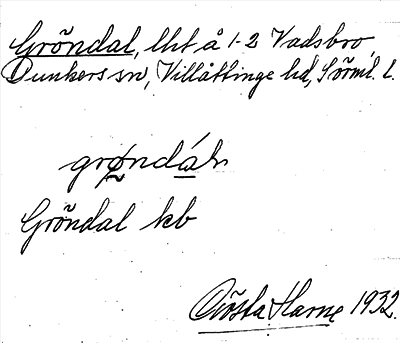 Gröndal, lht å 1-2 Vadsbro,
Dunkers sn, Villåttinge hd, Sörml. l.
Gröndal kb
Gösta Harne 1932.